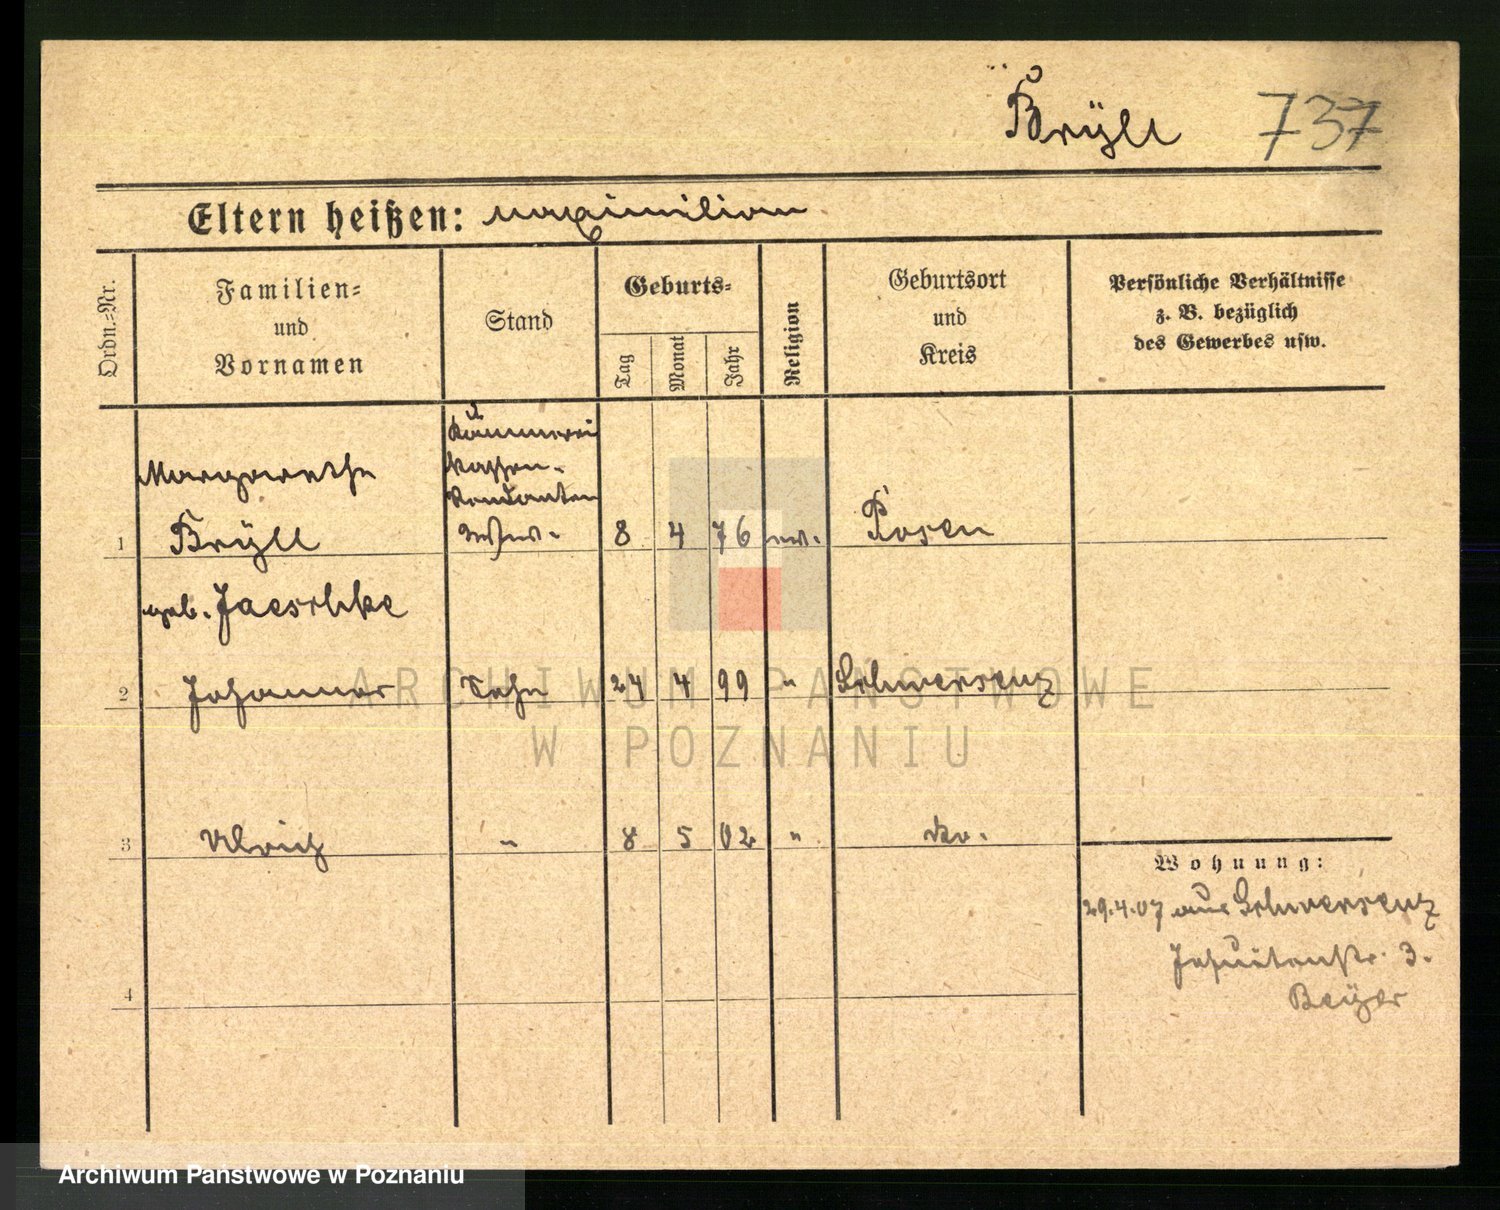 Brÿll 737
Eltern heißen: Maximilian
Ordn.-Nr.
Familien-
und
Vornamen
Stand
Geburts-
Tag
Monat
Jahr
Religion
Geburtsort
und
Kreis
Persönliche Verhältnisse
z. B. bezüglich
des Gewerbes usw.
Kämmerei
Kassen-
Rendanten
Margarethe
1 Brÿll Wwe. 8 4 76 ev. Posen
geb. Jaeschke
2 Johannes Sohn 24 4 99 " Schwersenz
3 Ulrich " 8 5 02 " do.
Wohnung:
29.4.07 aus Schwersenz
Jesuitenstr. 3.
Beÿer
4
ARCHIWUM PAŃSTWOWE
W POZNANIU
Archiwum Państwowe w Poznaniu